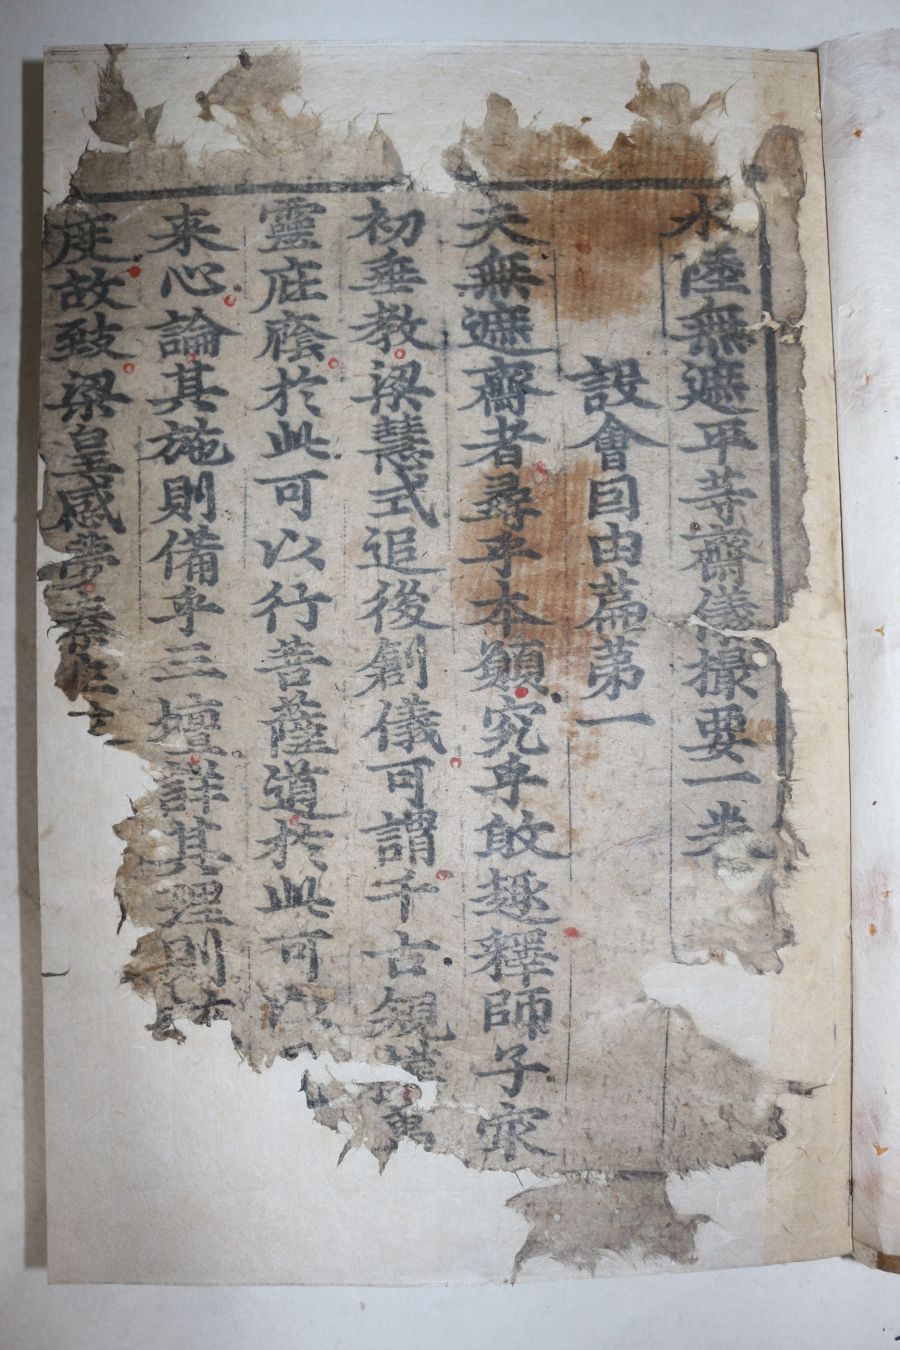 水陸無遮平等齋儀撮要一卷
設會因由篇第一
夫無遮齋者尋乎本願究乎敢趣釋師子宗
初垂教梁慧式追後創儀可謂千古規萬
靈庇廕於此可以行菩薩道於此可以
来心論其施則備乎三壇詳其理則
度故致梁皇感夢秦